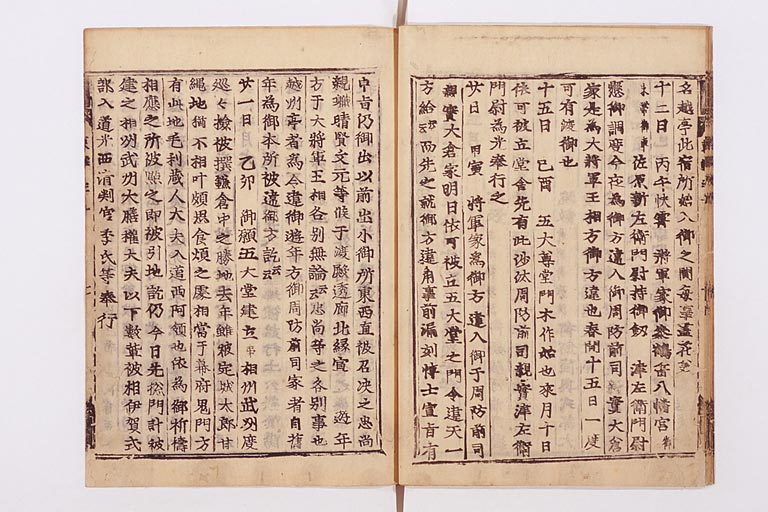 名越亭此宿所始入御之間毎事盡花美
十二日 丙午 快霽 將軍家御參鶴岳八幡宮 御
束帶御車 佐原新左衛門尉持御釼 澤左衛門尉
懸御調度今夜為御方違入御周防前司親實大倉
家是為大將軍王相方御方違也春間十五日一度
可有渡御也
十五日 己酉 五大尊堂門木作始也來月十日
依可被立堂舍先有此沙汰周防前司親實澤左衛
門尉為光奉行之
廿日 甲寅 將軍家為御方違入御于周防前司
親實大倉家明日依可被立五大堂之門令違天一
方給云云而先之就御方違角事前漏刻博士宣旨有
申旨仍御出以前出小御所東西直被召決之忠尚
親職晴賢文元等候于渡殿透廊北縁宣 遊年
方于大將軍王相各別無論云云忠尚等之各別事也
越州亭者為令違御遊年方御周防前司家者自舊
年為御本所被違御方訖云云
廿一日 乙卯 御願五大堂建立事相州武州度
巡々撿被撰鎌倉中之勝地去年雖被定城太郎甘
繩地猶不相叶頗思食煩之處相當于幕府鬼門方
有此地毛利藏人大夫入道西阿領也依為御祈禱
相應之所被點之即被引地訖仍今日先惣門計被
建之相州武州大膳權大夫以下數輩被相伊賀式
部入道光西清判官季氏等奉行